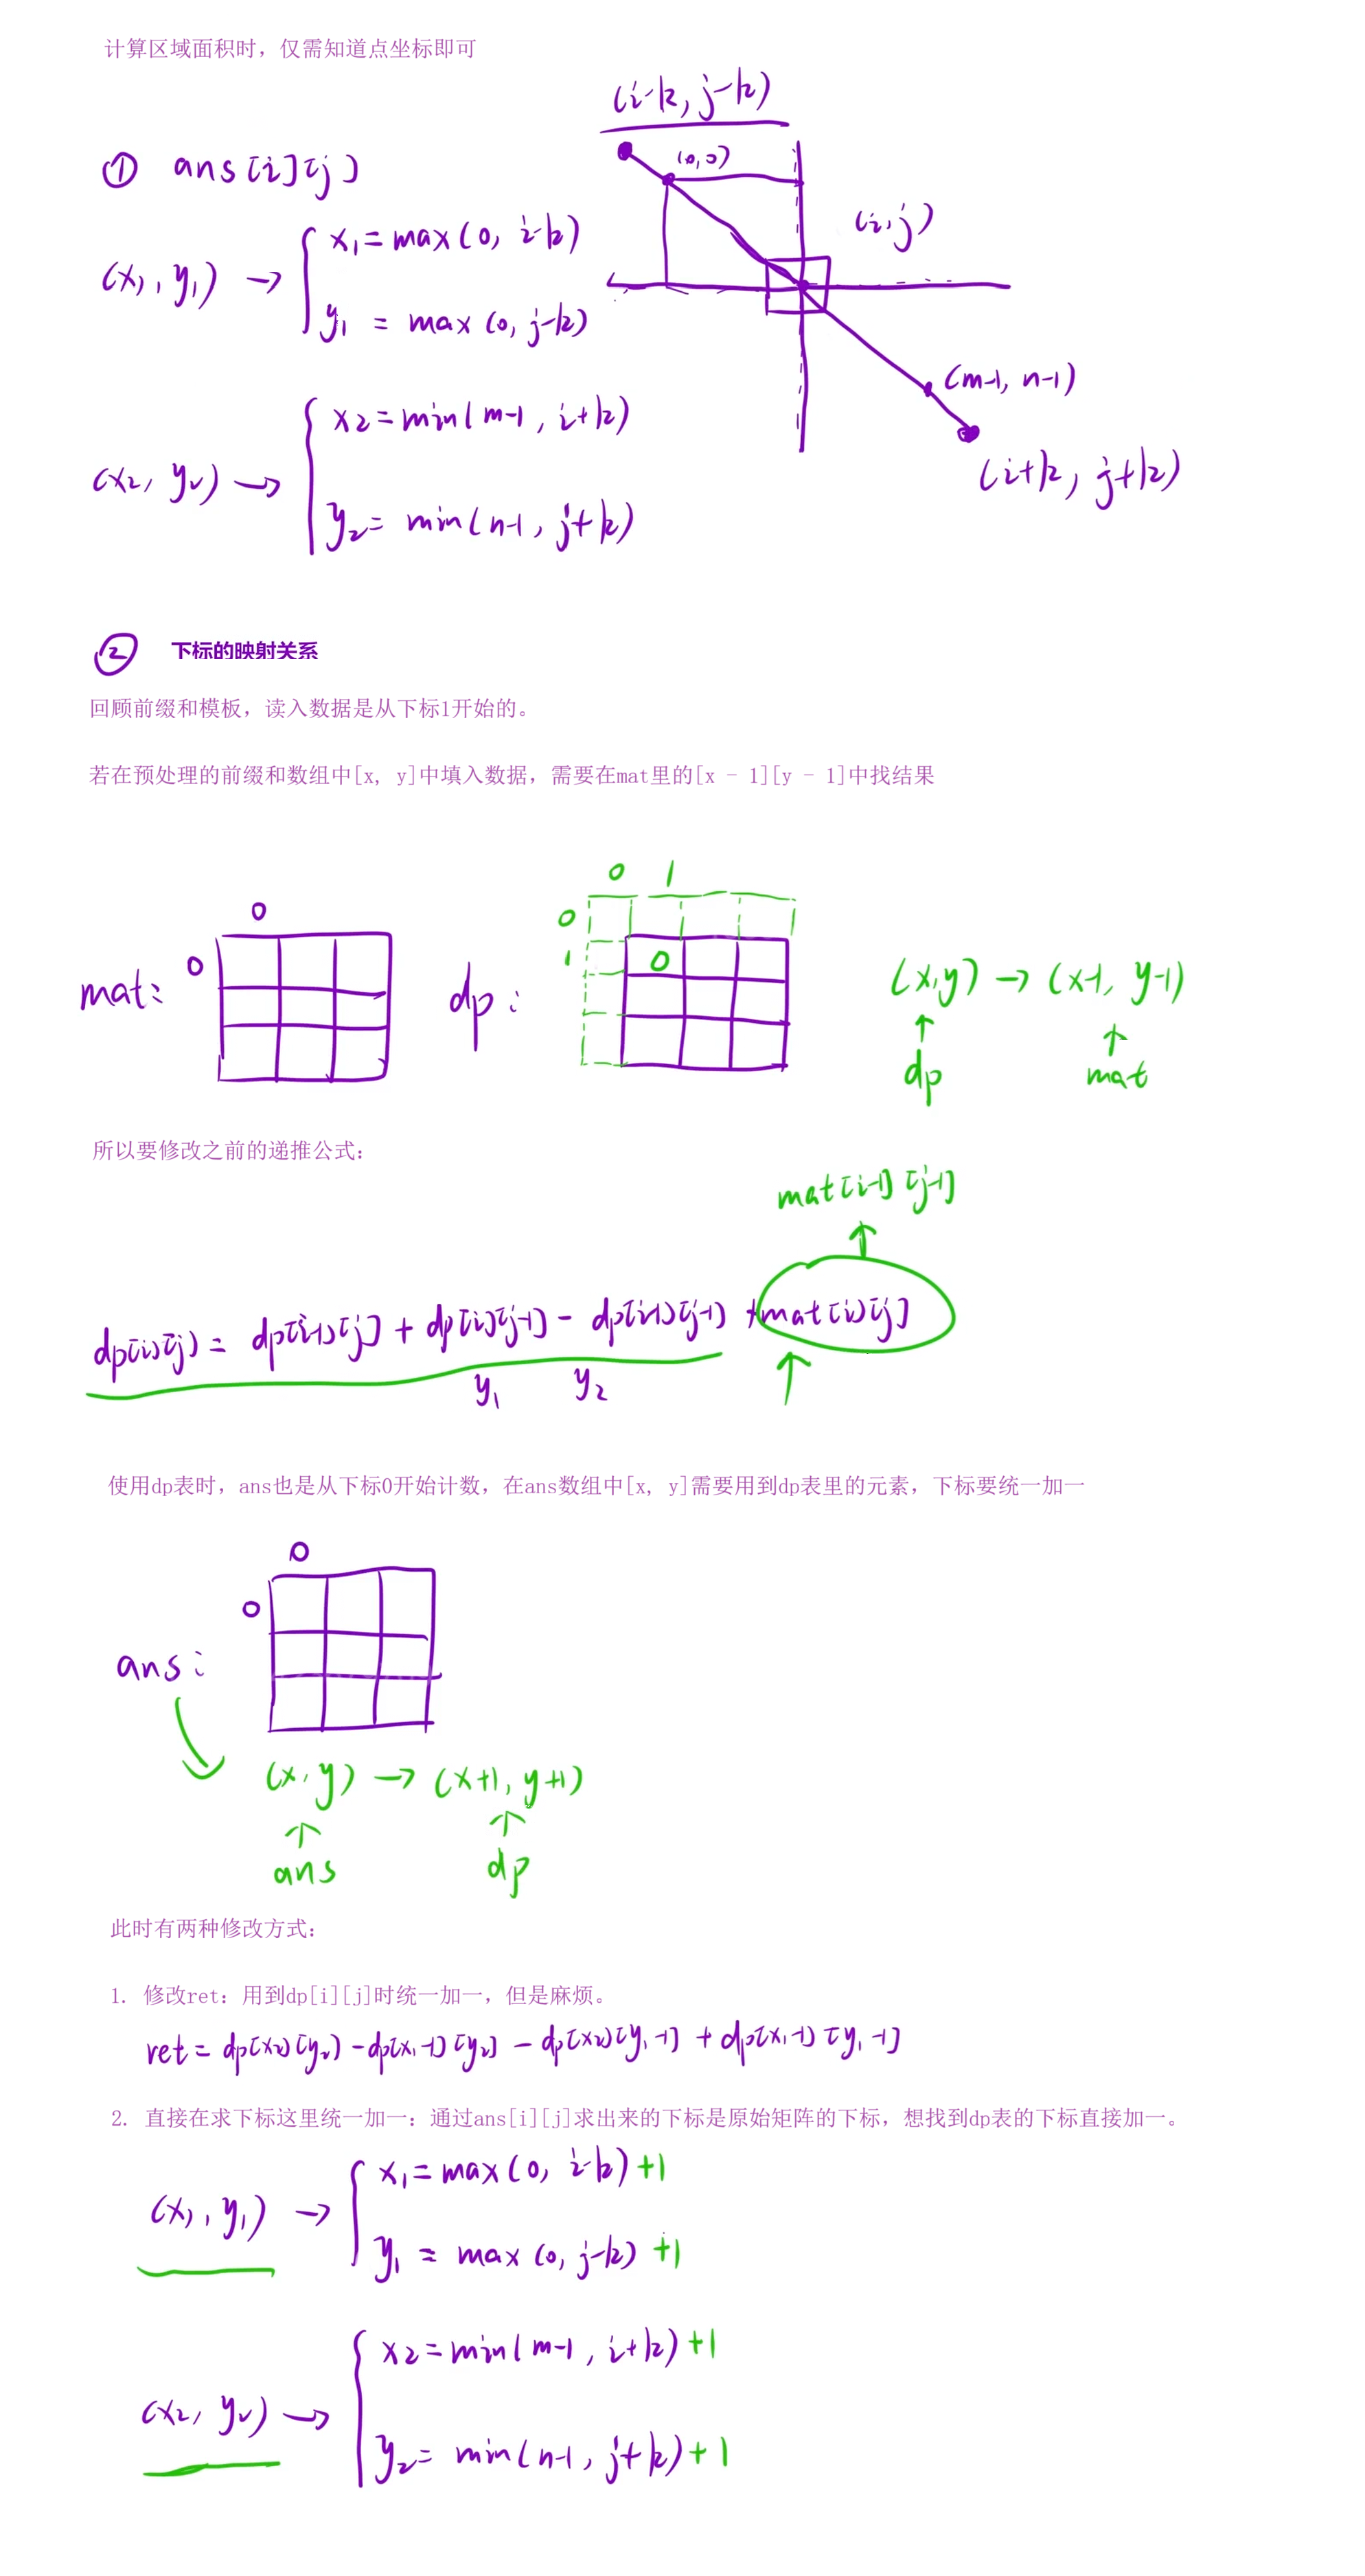 计算区域面积时，仅需知道点坐标即可
(i-k, j-k)
(0,0)
① ans[i][j]
(i,j)
(x1, y1) → { x1 = max(0, i-k)
y1 = max(0, j-k)
(m-1, n-1)
(i+k, j+k)
(x2, y2) → { x2 = min(m-1, i+k)
y2 = min(n-1, j+k)
② 下标的映射关系
回顾前缀和模板，读入数据是从下标1开始的。
若在预处理的前缀和数组中[x, y]中填入数据，需要在mat里的[x - 1][y - 1]中找结果
0 1
0
0
0
1
0
mat:
dp:
(x,y) → (x-1, y-1)
↑ ↑
dp mat
所以要修改之前的递推公式：
mat[i-1][j-1]
↑
dp[i][j] = dp[i-1][j] + dp[i][j-1] - dp[i-1][j-1] + mat[i][j]
y1 y2 ↑
使用dp表时，ans也是从下标0开始计数，在ans数组中[x, y]需要用到dp表里的元素，下标要统一加一
0
0
ans:
(x,y) → (x+1, y+1)
↑ ↑
ans dp
此时有两种修改方式：
1. 修改ret：用到dp[i][j]时统一加一，但是麻烦。
ret = dp[x2][y2] - dp[x1-1][y2] - dp[x2][y1-1] + dp[x1-1][y1-1]
2. 直接在求下标这里统一加一：通过ans[i][j]求出来的下标是原始矩阵的下标，想找到dp表的下标直接加一。
(x1, y1) → { x1 = max(0, i-k) +1
y1 = max(0, j-k) +1
(x2, y2) → { x2 = min(m-1, i+k) +1
y2 = min(n-1, j+k) +1